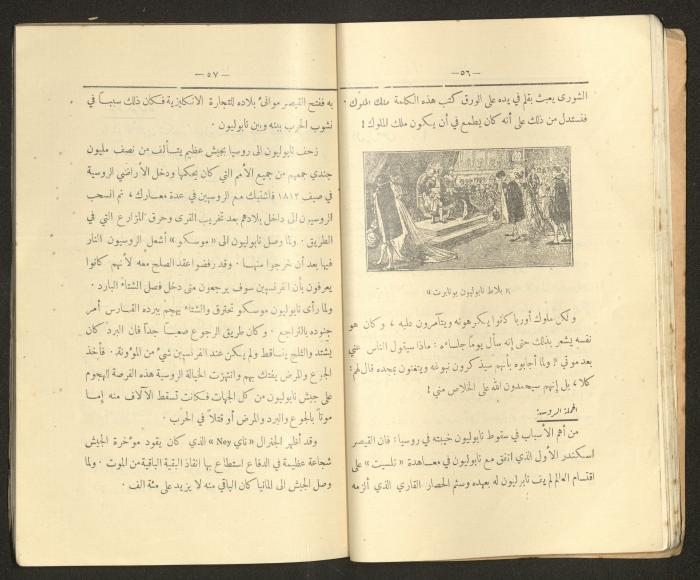 — ٥٦ —
الشورى يعبث بقلم في يده على الورق كتب هذه الكلمة ملك الملوك.
فنستدل من ذلك على أنه كان يطمع في أن يكون ملك الملوك!
« بلاط نابوليون بونابرت »
ولكن ملوك أوربا كانوا يكرهونه ويتآمرون عليه، وكان هو
نفسه يشعر بذلك حتى إنه سأل يومًا جلساءه: ماذا سيقول الناس عني
بعد موتي؟ ولما أجابوه بأنهم سيذكرون نبوغه ويتغنون بمجده قال لهم:
كلا، بل إنهم سيحمدون الله على الخلاص مني!
الحملة الروسية:
من أهم الأسباب في سقوط نابوليون خيبته في روسيا: فان القيصر
اسكندر الأول الذي اتفق مع نابوليون في معاهدة « تلسيت » على
اقتسام العالم لم يف نابوليون له بعهده وسئم الحصار القاري الذي ألزمه
— ٥٧ —
به ففتح القيصر موانئ بلاده للتجارة الانكليزية فكان ذلك سببًا في
نشوب الحرب بينه وبين نابوليون.
زحف نابوليون الى روسيا بجيش عظيم يتألف من نصف مليون
جندي جمعهم من جميع الأمم التي كان يحكمها ودخل الأراضي الروسية
في صيف ١٨١٢ فاشتبك مع الروسيين في عدة معارك، ثم انسحب
الروسيون الى داخل بلادهم بعد تخريب القرى وحرق المزارع التي في
الطريق. ولما وصل نابوليون الى « موسكو » أشعل الروسيون النار
فيها بعد أن خرجوا منها. وقد رفضوا عقد الصلح معه لأنهم كانوا
يعرفون بأن الفرنسيين سوف يرجعون متى دخل فصل الشتاء البارد.
ولما رأى نابوليون موسكو تحترق والشتاء يهجم ببرده القارس أمر
جنوده بالتراجع. وكان طريق الرجوع صعبًا جدًا فان البرد كان
يشتد والثلج يتساقط ولم يكن عند الفرنسيين شيء من المؤونة. فأخذ
الجوع والمرض يفتك بهم وانتهزت الخيالة الروسية هذه الفرصة للهجوم
على جيش نابوليون من كل الجهات فكانت تسقط الآلاف منه إما
موتًا بالجوع والبرد والمرض أو قتلاً في الحرب.
وقد أظهر الجنرال « ناي Ney » الذي كان يقود مؤخرة الجيش
شجاعة عظيمة في الدفاع استطاع بها انقاذ البقية الباقية من الموت. ولما
وصل الجيش الى المانيا كان الباقي منه لا يزيد على مئة الف.